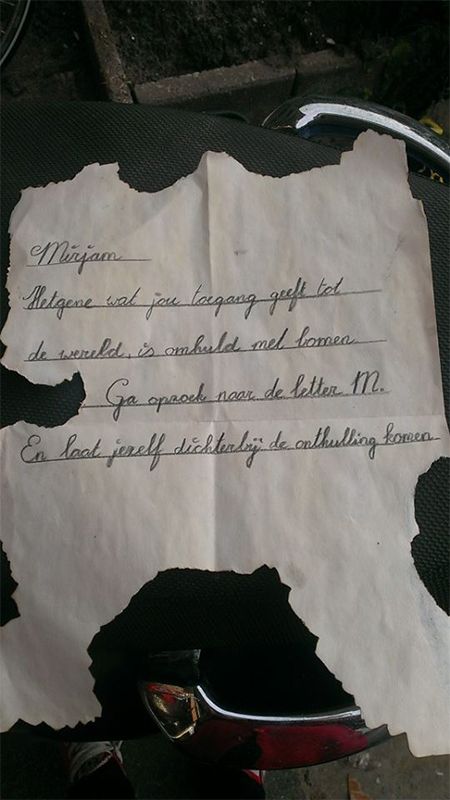 Mirjam
Hetgene wat jou toegang geeft tot
de wereld, is omhuld met bomen.
Ga opzoek naar de letter M.
En laat jezelf dichterbij de onthulling komen